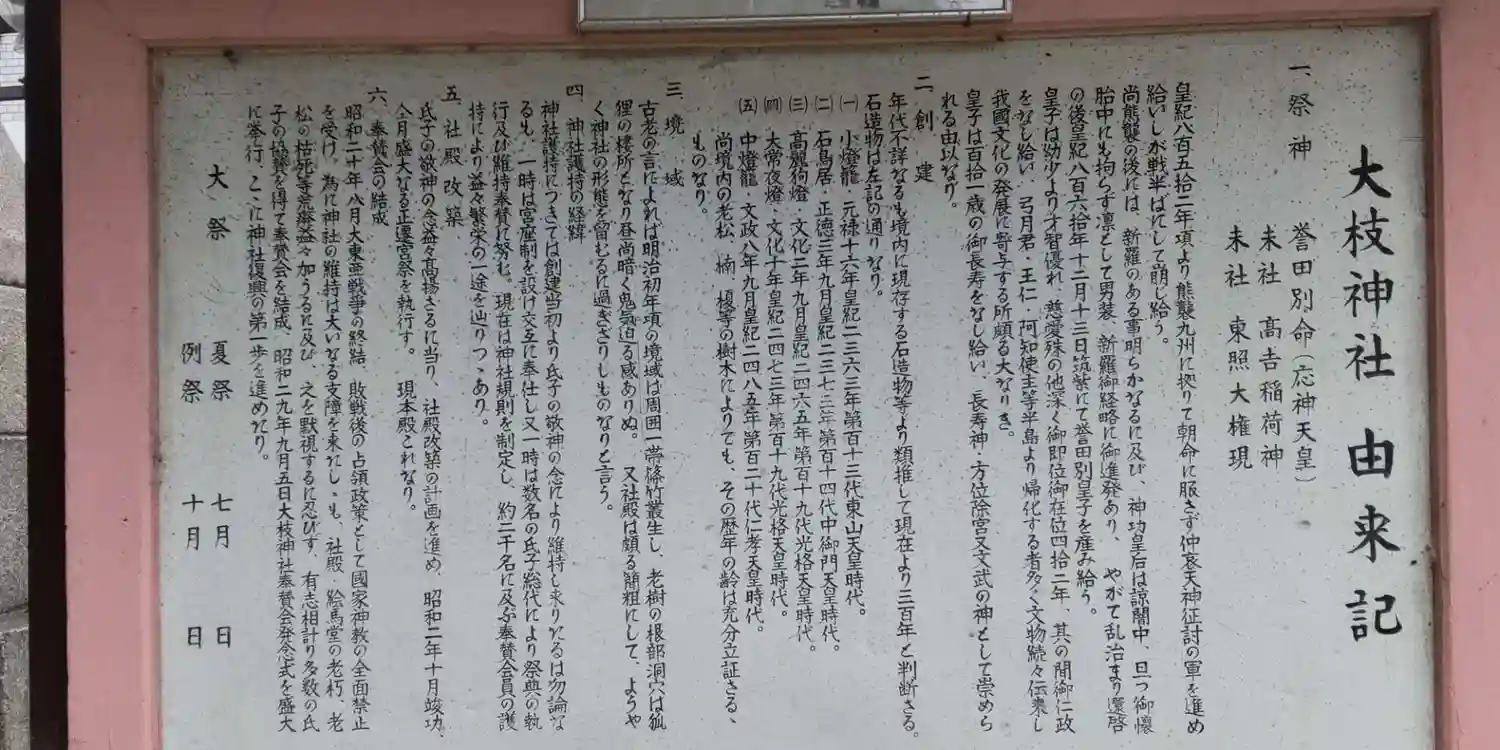 大枝神社 由来記
一 祭神 誉田別命(応神天皇)
末社 高吉稲荷神
末社 東照大権現
皇紀八百五拾二年頃より熊襲九州に拠りて朝命に服さず仲哀天神征討の軍を進め
給いしが戦半ばにして崩じ給う。
尚熊襲の後には、新羅のある事明らかなるに及び、神功皇后は諒闇中、旦つ御懐
胎中にも拘らず凛として男装、新羅御経略に御進発あり、やがて乱治まり還啓
の後皇紀八百六拾年十二月十三日筑紫にて誉田別皇子を産み給う。
皇子は幼少より才智優れ、慈愛殊の他深く御即位御在位四拾二年、其の間御仁政
をなし給い、弓月君・王仁・阿知使主等半島より帰化する者多く文物続々伝来し
我國文化の発展に寄与する所頗る大なりき。
皇子は百拾一歳の御長寿をなし給い、長寿神・方位除宮又文武の神として崇めら
れる由以なり。
二 創建
年代不詳なるも境内に現存する石造物等より類推して現在より三百年と判断さる。
石造物は左記の通りなり。
(一) 小燈籠・元禄十六年皇紀二三六三年第百十三代東山天皇時代。
(二) 石鳥居・正徳三年九月皇紀二三七三年第百十四代中御門天皇時代。
(三) 高麗狗燈・文化二年九月皇紀二四六五年第百十九代光格天皇時代。
(四) 太常夜燈・文化十年皇紀二四七三年第百十九代光格天皇時代。
(五) 中燈籠・文政八年九月皇紀二四八五年第百二十代仁孝天皇時代。
尚境内の老松、楠、榎等の樹木によりても、その歴年の齢は充分立証さる、
ものなり。
三 境域
古老の言によれば明治初年頃の境域は周囲一帯篠竹叢生し、老樹の根部洞穴は狐
狸の棲所となり昼尚暗く鬼気迫る感ありぬ。又社殿は頗る簡粗にして、ようや
く神社の形態を留むるに過ぎざりしものなりと言う。
四 神社護持の経緯
神社護持につきては創建当初より氏子の敬神の念により維持し来りたるは勿論な
るも、一時は宮座制を設け交互に奉仕し又一時は数名の氏子総代により祭典の執
行及び維持奉賛に努む。現在は神社規則を制定し、約二千名に及ぶ奉賛会員の護
持により益々繁栄の一途を辿りつゝあり。
五 社殿改築
氏子の敬神の念益々高揚さるに当り、社殿改築の計画を進め、昭和二年十月竣功、
仝月盛大なる正遷宮祭を執行す。現本殿これなり。
六 奉賛会の結成
昭和二十年八月大東亜戦争の終結、敗戦後の占領政策として國家神教の全面禁止
を受け、為に神社の維持は大いなる支障を来たしゝも、社殿・絵馬堂の老朽、老
松の枯死等荒癈益々加うるに及び、之を黙視するに忍びず、有志相計り多数の氏
子の協賛を得て奉賛会を結成、昭和二九年九月五日大枝神社奉賛会発念式を盛大
に挙行、こゝに神社復興の第一歩を進めたり。
大祭 夏祭 七月 日
例祭 十月 日